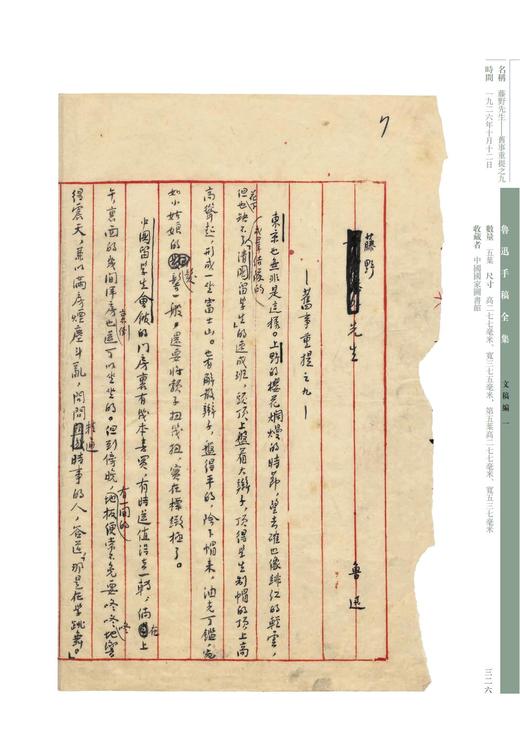 名稱 藤野先生——舊事重提之九
時間 一九二六年十月十二日
魯迅手稿全集 文稿編 一
數量 五葉 尺寸 高二七七毫米、寬三七五毫米，第五葉高二七七毫米、寬五三七毫米
收藏者 中國國家圖書館
三二六
7
藤野先生
魯迅
—舊事重提之九—
東京也無非是這樣。上野的櫻花爛熳的時節，望去確也像緋紅的輕雲，
但花下也缺不了成羣結隊的「清國留學生」的速成班，頭頂上盤着大辮子，頂得學生制帽的頂上高
高聳起，形成一座富士山。也有解散辮子，盤得平的，除下帽來，油光可鑑，宛
如小姑娘的髮髻一般，還要將頸子扭幾扭，實在標緻極了。
中國留學生會館的門房裏有幾本書買，有時還值得去一轉；倘在上
午，裏面的幾間洋房裏倒也還可以坐坐的。但到傍晚，有一間的地板便常不免要咚咚咚地響
得震天，兼以滿房煙塵斗亂，問問精通時事的人，答道，「那是在學跳舞。」